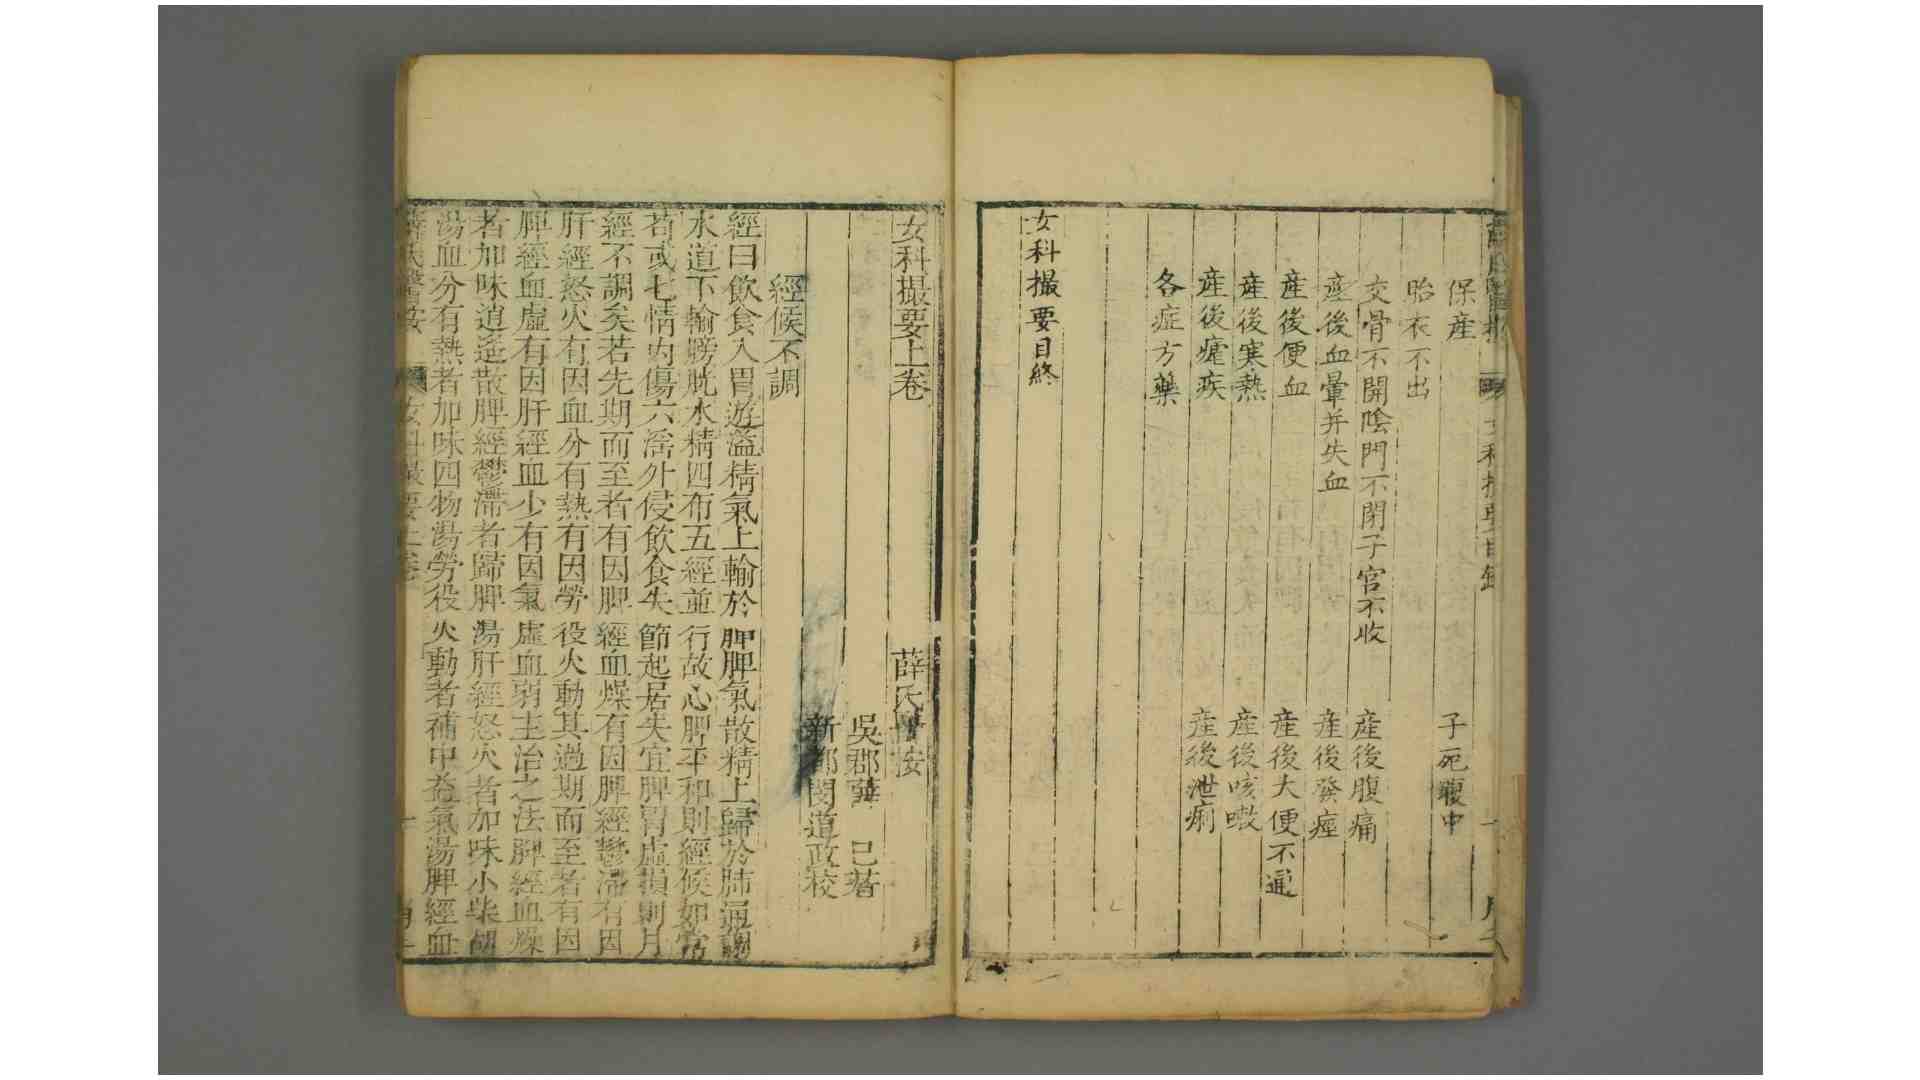 保産
子死腹中
胎衣不出
交骨不開陰門不閉子宮不收
産後腹痛
産後血暈并失血
産後發痙
産後便血
産後大便不通
産後寒熱
産後咳嗽
産後瘧疾
産後泄痢
各症方藥
女科撮要目終
女科撮要上卷
薛氏醫按
吳郡薛 己著
新都閔道政校
經候不調
經曰飲食入胃遊溢精氣上輸於脾脾氣散精上歸於肺通調
水道下輸膀胱水精四布五經並行故心脾平和則經候如常
苟或七情内傷六淫外侵飲食失節起居失宜脾胃虛損則月
經不調矣若先期而至者有因脾經血燥有因脾經鬱滯有因
肝經怒火有因血分有熱有因勞役火動其過期而至者有因
脾經血虛有因肝經血少有因氣虛血弱主治之法脾經血燥
者加味逍遙散脾經鬱滯者歸脾湯肝經怒火者加味小柴胡
湯血分有熱者加味四物湯勞役火動者補中益氣湯脾經血
薛氏醫按 女科撮要上卷 一